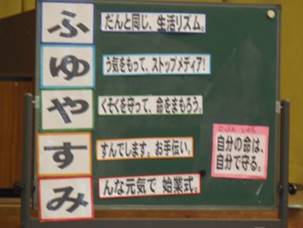 ふだんと同じ、生活リズム。
ゆう気をもって、ストップメディア!
やくそくを守って、命をまもろう。
すすんでします。お手伝い。
みんな元気で 始業式。
自分の命は、
自分で守る。